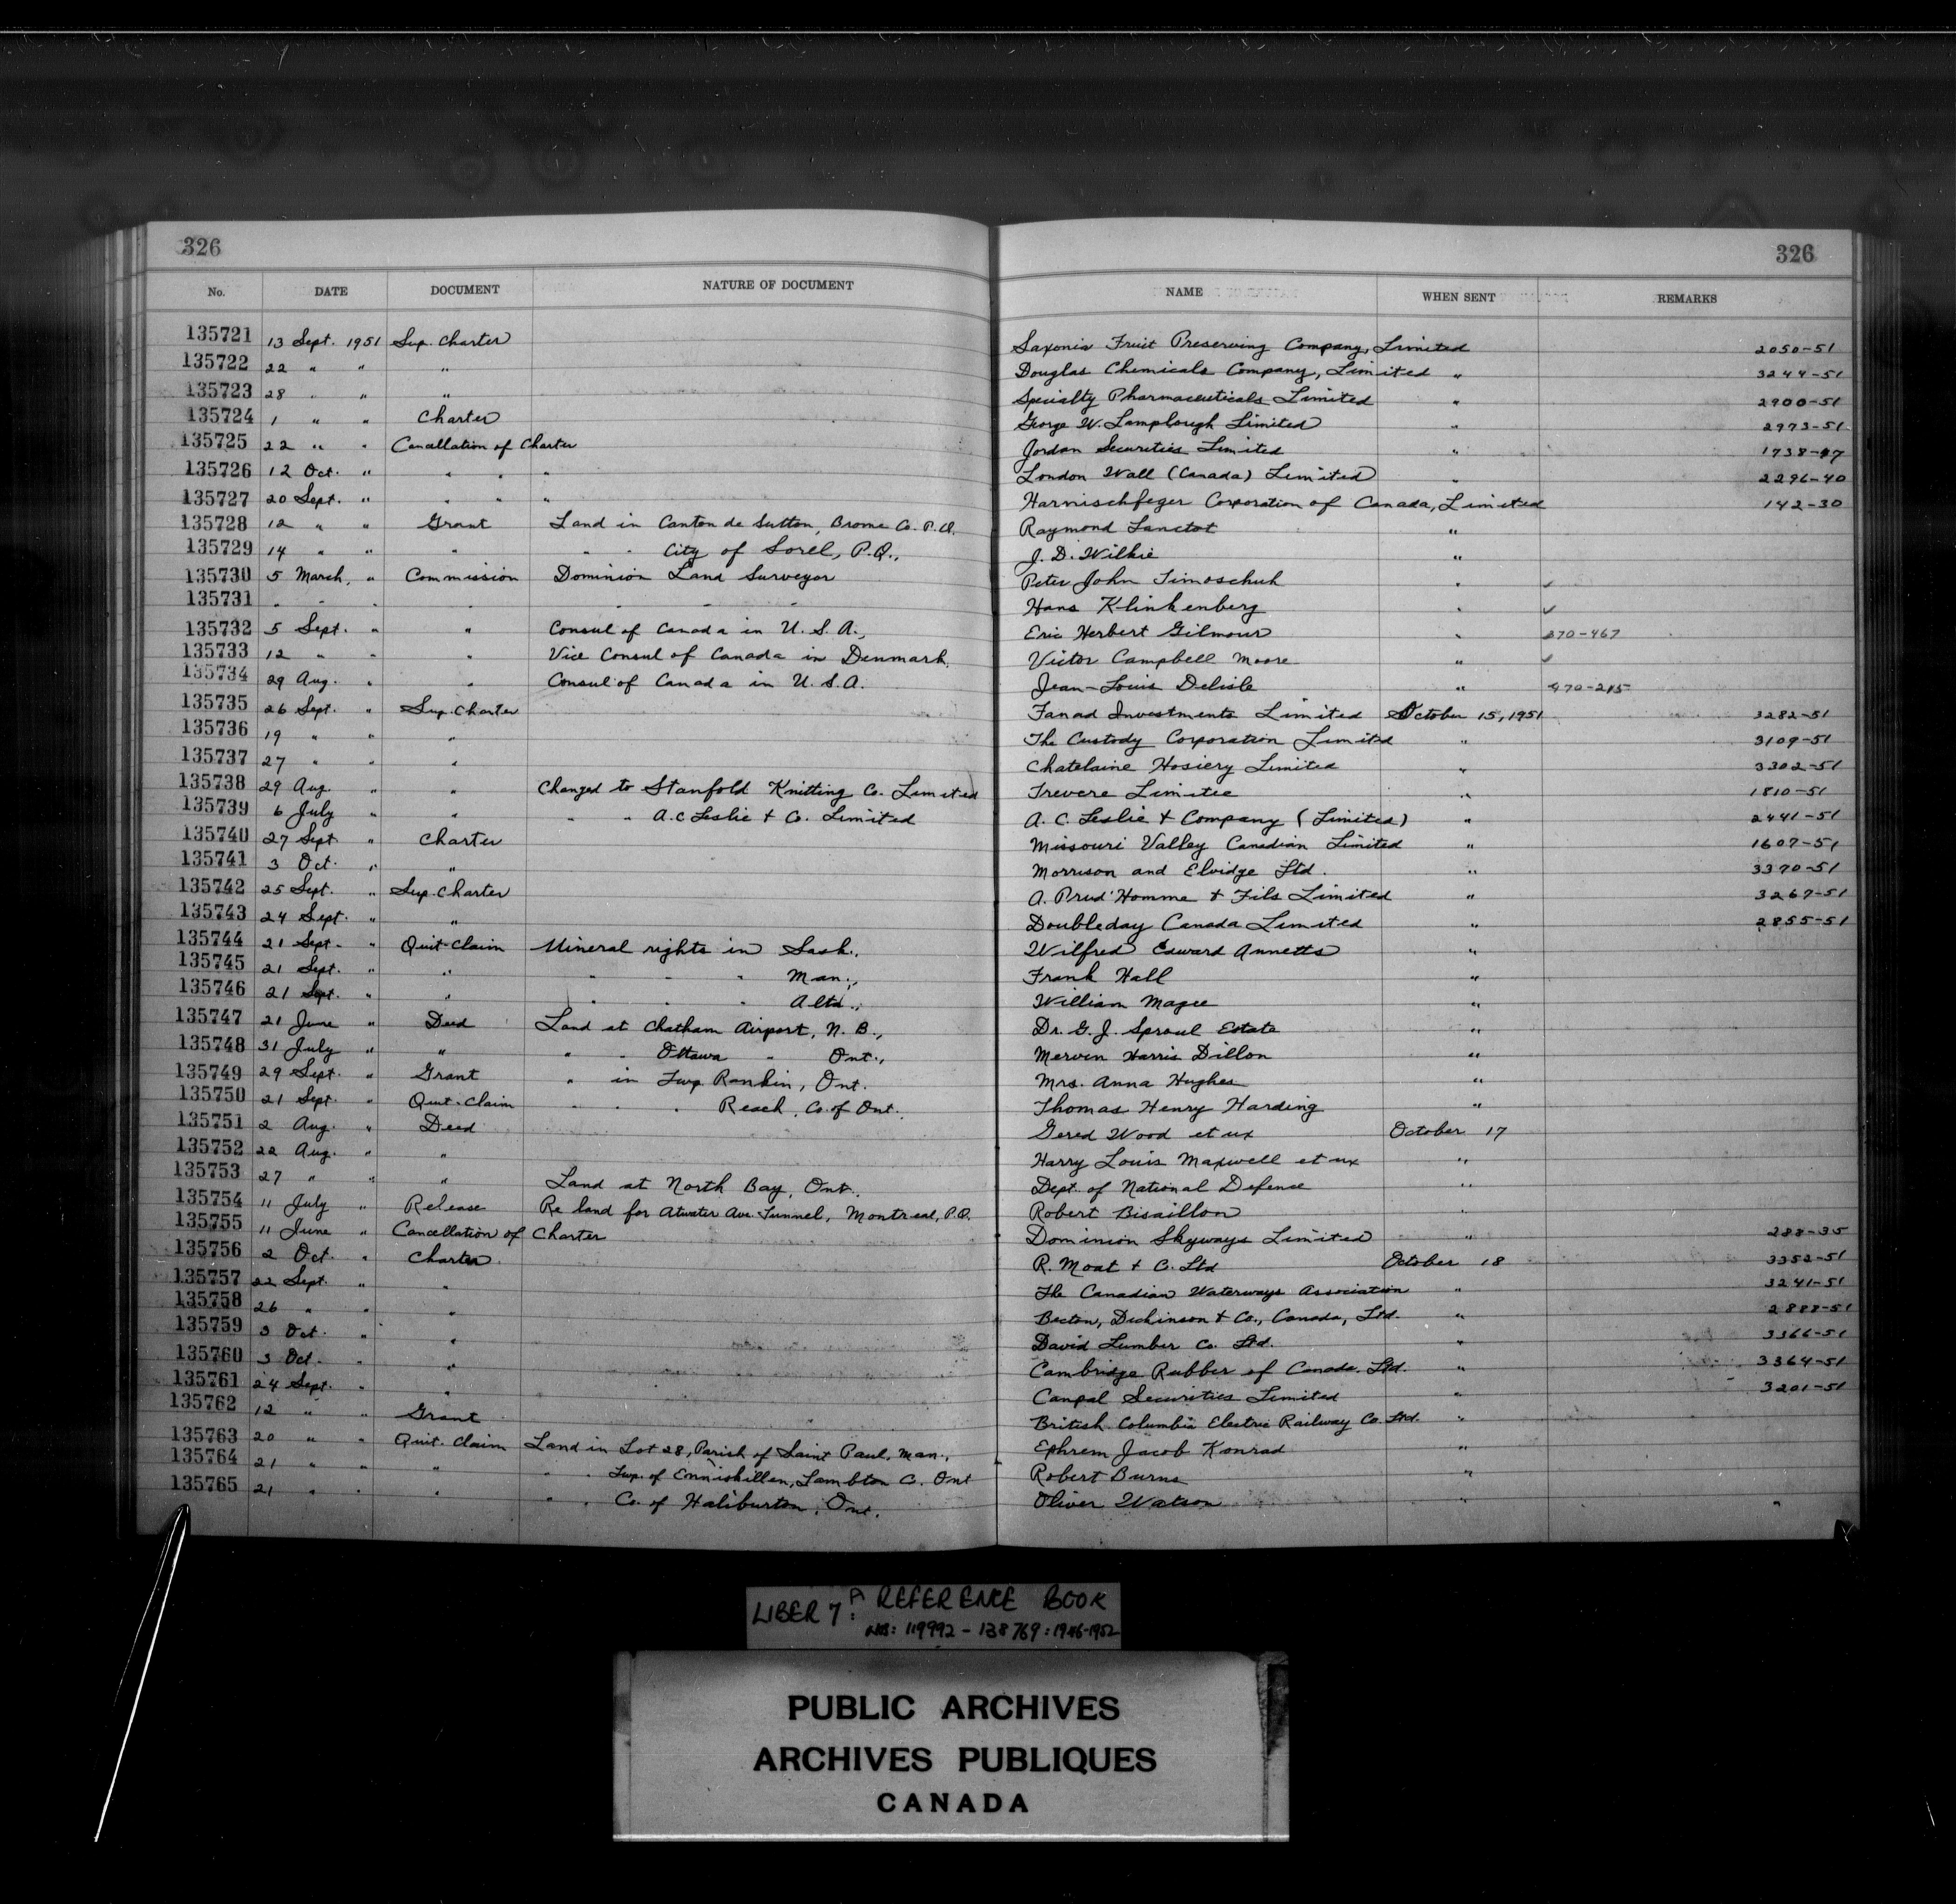 326 326
No. DATE DOCUMENT NATURE OF DOCUMENT NAME WHEN SENT REMARKS
135721 13 Sept. 1951 Sup. Charter Saxonia Fruit Preserving Company, Limited 2050-51
135722 22 " " " Douglas Chemicals Company, Limited " 3244-51
135723 28 " " " Specialty Pharmaceuticals Limited " 2900-51
135724 1 " " Charter George W. Lamplough Limited " 2973-51
135725 22 " " Cancellation of Charter Jordan Securities Limited " 1738-47
135726 12 Oct. " " " " London Wall (Canada) Limited " 2296-40
135727 20 Sept. " " " " Harnischfeger Corporation of Canada, Limited 142-30
135728 12 " " Grant Land in Canton de Sutton, Brome Co. P.Q. Raymond Lanctot "
135729 14 " " " " " City of Sorel, P.Q., J. D. Wilkie "
135730 5 March, " Commission Dominion Land Surveyor Peter John Timoschuk " ✓
135731 " " " " " " " Hans Klinkenberg " ✓
135732 5 Sept. " " Consul of Canada in U.S.A., Eric Herbert Gilmour " 370-467
135733 12 " " " Vice Consul of Canada in Denmark. Victor Campbell Moore " ✓
135734 29 Aug. " " Consul of Canada in U.S.A. Jean-Louis Delisle " 470-215
135735 26 Sept. " Sup. Charter Fanad Investments Limited October 15, 1951 3282-51
135736 19 " " " The Custody Corporation Limited " 3109-51
135737 27 " " " Chatelaine Hosiery Limited " 3302-51
135738 29 Aug. " " Changed to Stanfold Knitting Co. Limited Trevere Limitee " 1810-51
135739 6 July " " " " A.C Leslie & Co. Limited A. C. Leslie & Company (Limited) " 2441-51
135740 27 Sept " Charter Missouri Valley Canadian Limited " 1607-51
135741 3 Oct. " " Morrison and Elvidge Ltd. " 3370-51
135742 25 Sept. " Sup. Charter A. Prud'Homme & Fils Limited " 3267-51
135743 24 Sept. " " Doubleday Canada Limited " 2855-51
135744 21 Sept. " Quit-Claim Mineral rights in Sask., Wilfred Edward Annetts "
135745 21 Sept. " " " " " Man., Frank Hall "
135746 21 Sept. " " " " " Alta., William Magee "
135747 21 June " Deed Land at Chatham Airport, N.B., Dr. G. J. Sproul Estate "
135748 31 July " " " " Ottawa " Ont., Mervin Harris Dillon "
135749 29 Sept. " Grant " in Twp. Rankin, Ont. Mrs. Anna Hughes "
135750 21 Sept. " Quit-Claim " " " Reach, Co. of Ont. Thomas Henry Harding "
135751 2 Aug. " Deed Gered Wood et ux October 17
135752 22 Aug. " " Harry Louis Maxwell et ux "
135753 27 " " " Land at North Bay, Ont. Dept. of National Defence "
135754 11 July " Release Re land for Atwater Ave. Tunnel, Montreal, P.Q. Robert Bisaillon "
135755 11 June " Cancellation of Charter Dominion Skyways Limited " 288-35
135756 2 Oct. " Charter R. Moat & C. Ltd October 18 3352-51
135757 22 Sept. " " The Canadian Waterways Association " 3241-51
135758 26 " " " Becton, Dickinson & Co., Canada, Ltd. " 2888-51
135759 3 Oct. " " David Lumber Co. Ltd. " 3366-51
135760 3 Oct. " " Cambridge Rubber of Canada. Ltd. " 3364-51
135761 24 Sept. " " Canpal Securities Limited " 3201-51
135762 12 " " Grant British Columbia Electric Railway Co. Ltd. "
135763 20 " " Quit-Claim Land in Lot 28, Parish of Saint Paul, Man., Ephrem Jacob Konrad "
135764 21 " " " " " Twp. of Enniskillen, Lambton C. Ont Robert Burns "
135765 21 " " " " " Co. of Haliburton, Ont. Oliver Watson "
LIBER 7A: REFERENCE BOOK
NOS: 119992 - 138769: 1946-1952
PUBLIC ARCHIVES
ARCHIVES PUBLIQUES
CANADA